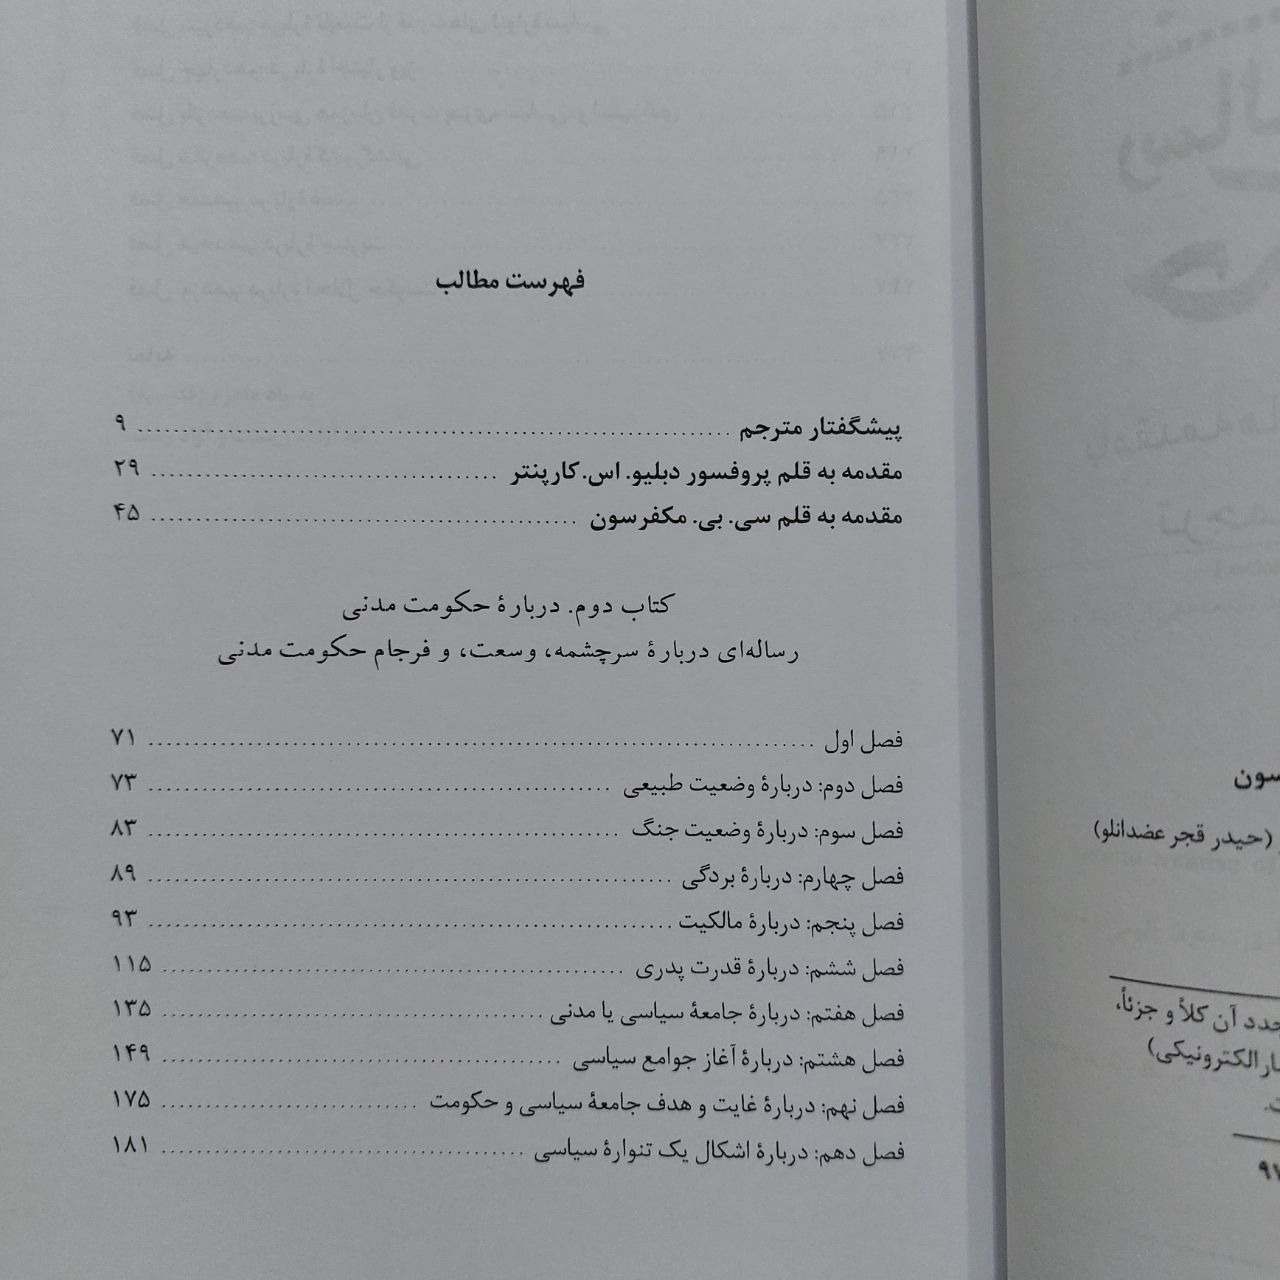 فهرست مطالب
پیشگفتار مترجم ........ ۹
مقدمه به قلم پروفسور دبلیو. اس. کارپنتر ........ ۲۹
مقدمه به قلم سی. بی. مکفرسون ........ ۴۵
کتاب دوم. دربارهٔ حکومت مدنی
رساله‌ای دربارهٔ سرچشمه، وسعت، و فرجام حکومت مدنی
فصل اول ........ ۷۱
فصل دوم: دربارهٔ وضعیت طبیعی ........ ۷۳
فصل سوم: دربارهٔ وضعیت جنگ ........ ۸۳
فصل چهارم: دربارهٔ بردگی ........ ۸۹
فصل پنجم: دربارهٔ مالکیت ........ ۹۳
فصل ششم: دربارهٔ قدرت پدری ........ ۱۱۵
فصل هفتم: دربارهٔ جامعهٔ سیاسی یا مدنی ........ ۱۳۵
فصل هشتم: دربارهٔ آغاز جوامع سیاسی ........ ۱۴۹
فصل نهم: دربارهٔ غایت و هدف جامعهٔ سیاسی و حکومت ........ ۱۷۵
فصل دهم: دربارهٔ اشکال یک تنوارهٔ سیاسی ........ ۱۸۱
(حیدر قجر عضدانلو)
آن کلاً و جزئاً،
الکترونیکی)